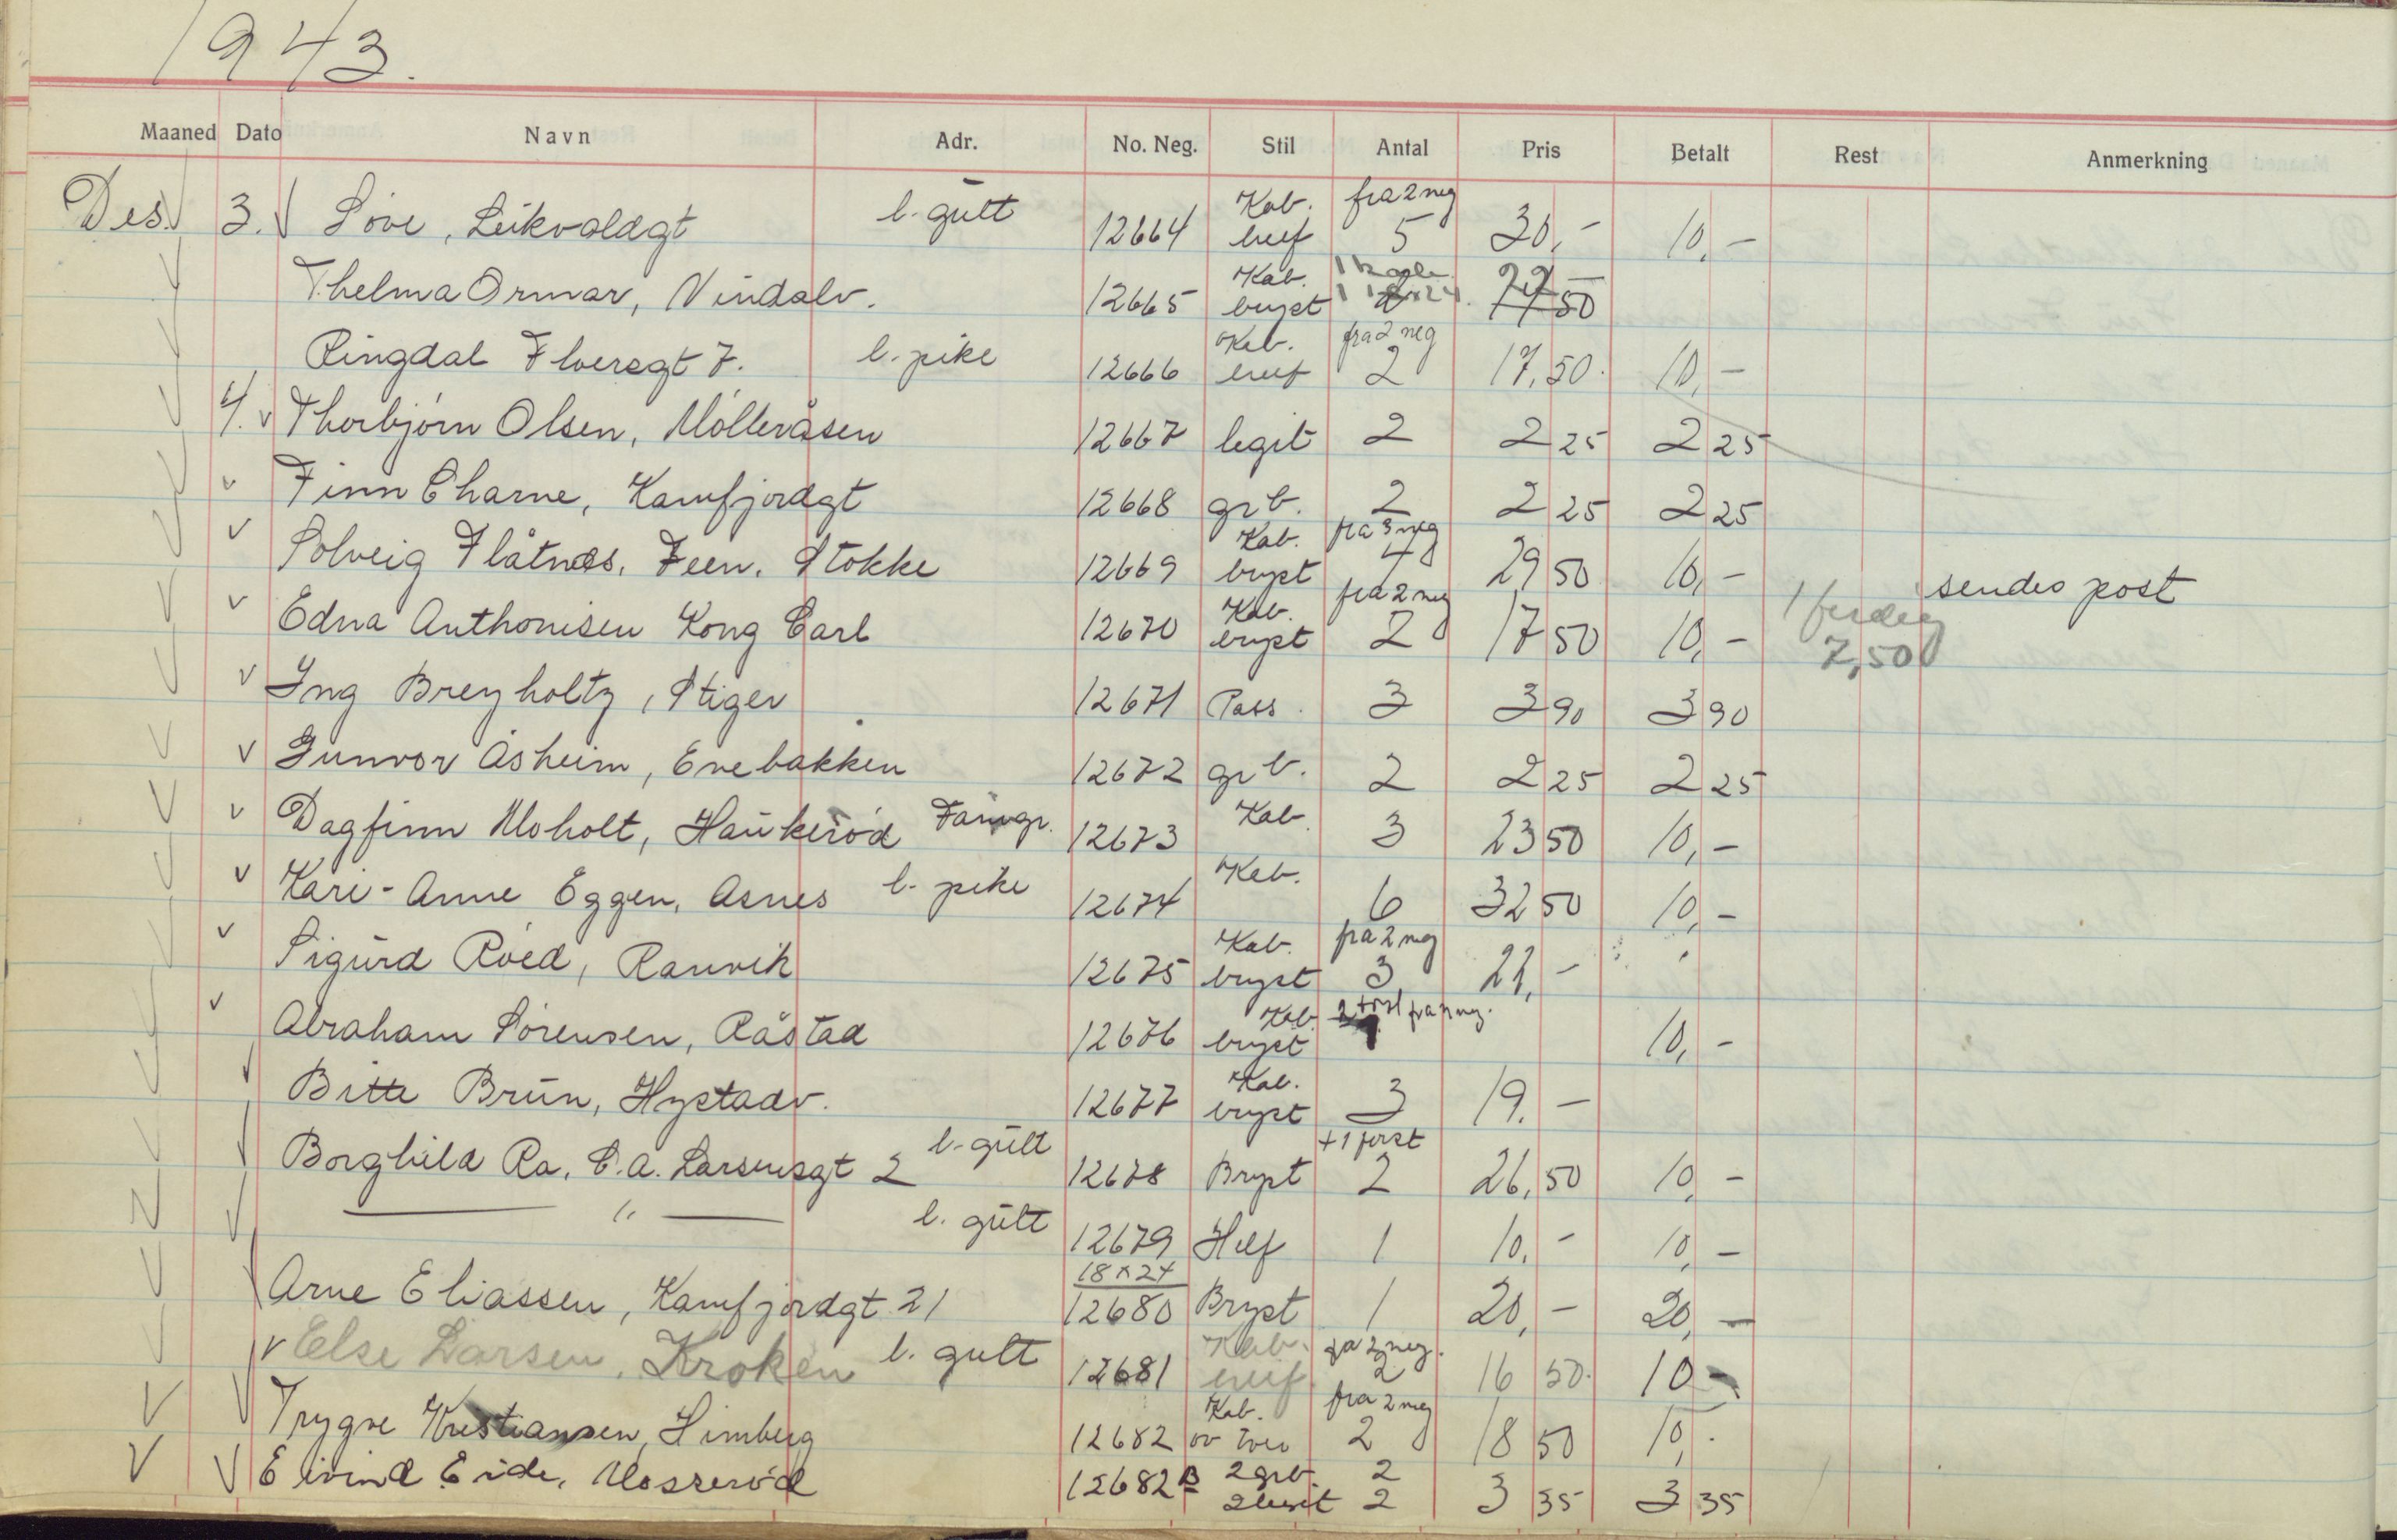 1943.
Maaned Dato Navn Adr. No. Neg. Stil Antal Pris Betalt Rest Anmerkning
Des. 3. Søve, Leikvoldgt l. gutt 12664 Kab. fra 2 neg 5 30,- 10,-
Thelma Ormar, Vindalv. 12665 Kab. bryst 1 18x24 22 - 17 50
Ringdal Thorsgt 7. l. pike 12666 Kab. fra 2 neg 2 17,50. 10,-
4. Thorbjørn Olsen, Mølleråsen 12667 legit 2 2 25 2 25
Finn Charne, Kamfjordgt 12668 gr b. 2 2 25 2 25
Solveig Flåtnes, Feen, Stokke 12669 Kab. bryst fra 3 neg 4 29 50 10,- sendes post
Edna Anthonisen Kong Carl 12670 Kab. bryst fra 2 neg 2 17 50 10,- 1 ferdig 7,50
Ing Breyholtz, Stiger 12671 Pass. 3 3 90 3 90
Gunvor Åsheim, Enebakken 12672 gr b. 2 2 25 2 25
Dagfinn Moholt, Haukerød Famgr. 12673 Kab. 3 23 50 10,-
Kari-Anne Eggen, Asnes l. pike 12674 Kab. 6 32 50 10,-
Sigurd Røed, Ranvik 12675 Kab. bryst fra 2 neg 3 22,-
Abraham Sørensen, Råstad 12676 Kab. bryst 10,-
Bitte Brun, Hystadv. 12677 Kab. bryst 3 19.-
Borghild Ra, C.A. Larsensgt 2 l. gutt 12678 Bryst +1 forst 2 26,50 10,-
— " — l. gutt 12679 Helf 1 10,- 10,-
Arne Eliassen, Kamfjordgt 21 18x24 12680 Bryst 1 20,- 20,-
Else Larsen, Kroken l. gutt 12681 Kab. fra 2 neg. 2 16 50. 10 -
Trygve Kristiansen, Himberg 12682 Kab. fra 2 neg 2 18 50 10,.
Eivind Eide, Mosserød 12682 B 2 grb. 2 2 2 3 35 3 35